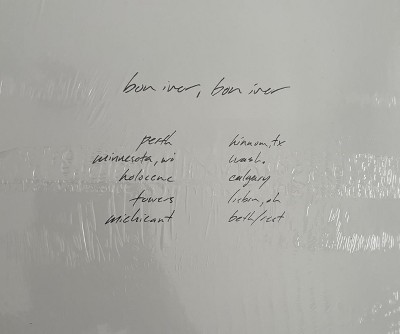 bon iver, bon iver
perth
minnesota, wi
holocene
towers
michicant
hinnom, tx
wash.
calgary
lisbon, oh
beth/rest